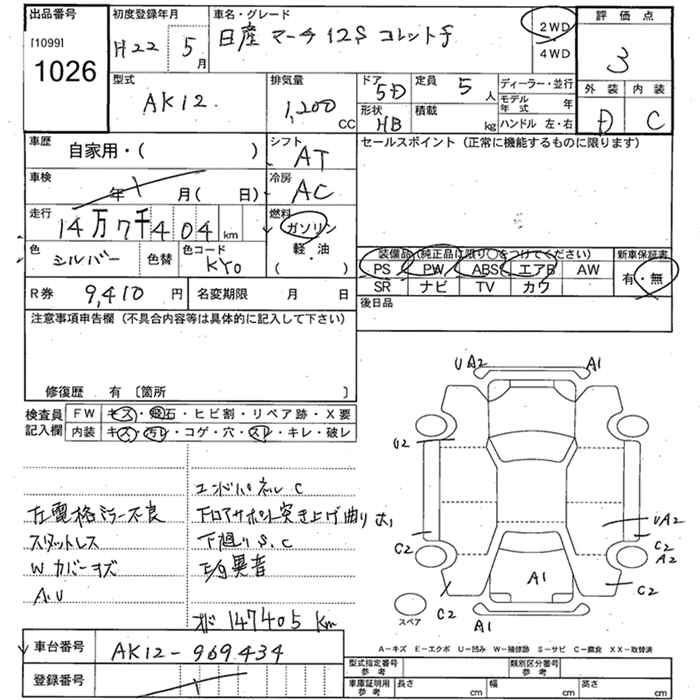 出品番号
[1099]
1026
初度登録年月
H22 5月
車名・グレード
日産 マーチ 12S コレットf
2WD
4WD
評価点
3
外装 内装
D C
型式
AK12
排気量
1,200 CC
ドア
5D
定員 5人
形状
HB
積載 kg
ディーラー・並行
モデル年式 年
ハンドル 左・右
車歴
自家用・( )
シフト
AT
セールスポイント (正常に機能するものに限ります)
車検
年 月( 日)
冷房
AC
走行
14万7千404km
燃料
ガソリン
軽・油
( )
色
シルバー
色替
色コード
KY0
装備品(純正品に限り○をつけてください)
新車保証書
PS PW ABS エアB AW
SR ナビ TV カワ
有・無
R券 9,410円
名変期限 月 日
後日品
注意事項申告欄 (不具合内容等は具体的に記入して下さい)
修復歴 有 〔箇所 〕
検査員記入欄
FW キズ・飛石・ヒビ割・リペア跡・X要
内装 キズ・汚レ・コゲ・穴・スレ・キレ・破レ
エンドパネル C
左電格ミラー不良
下回りS.C
スタットレス
Wカバーキズ
E/g異音
A.U
147405 km
UA2 A1
U2
UA2
C2
C2
A2
C2
C2
A1
A1
スペア
A−キズ E−エクボ U−凹み W−補修跡 S−サビ C−腐食 XX−取替済
車台番号
AK12-969434
登録番号
型式指定番号 参考
類別区分番号 参考
車庫証明用 参考
長さ cm 幅 cm 高さ cm